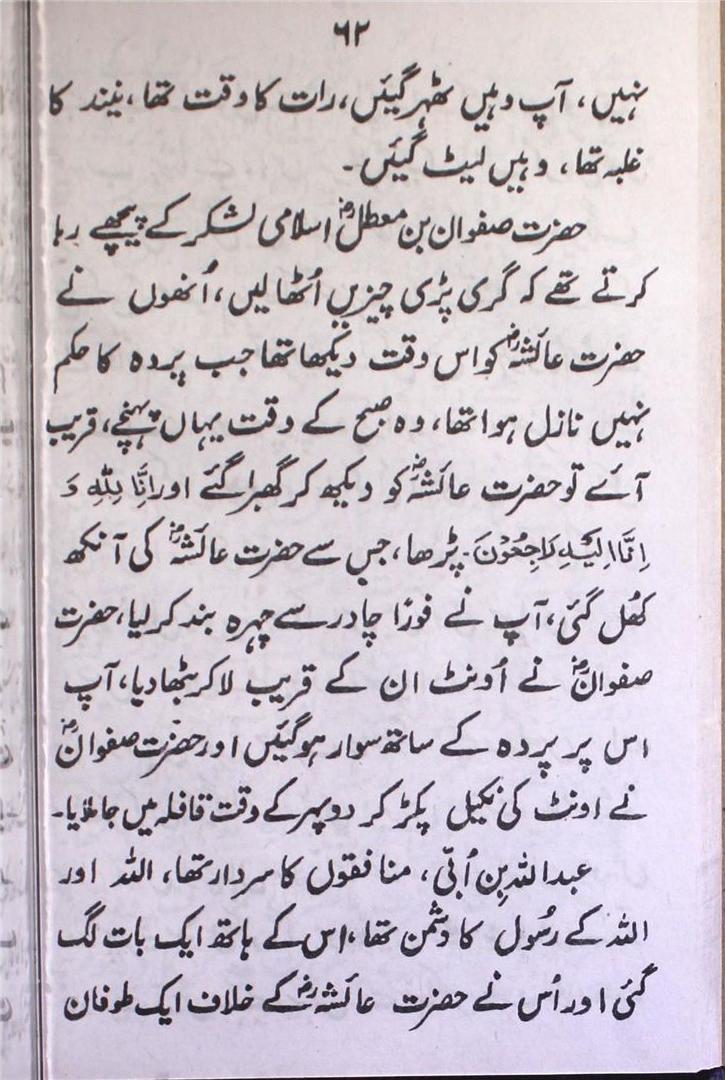 ۶۲
نہیں، آپ وہیں ٹھہر گئیں، رات کا وقت تھا، نیند کا
غلبہ تھا، وہیں لیٹ گئیں۔
حضرت صفوان بن معطلؓ اسلامی لشکر کے پیچھے رہا
کرتے تھے کہ گری پڑی چیزیں اُٹھا لیں، اُنھوں نے
حضرت عائشہؓ کو اس وقت دیکھا تھا جب پردہ کا حکم
نہیں نازل ہوا تھا، وہ صبح کے وقت یہاں پہنچے، قریب
آئے تو حضرت عائشہؓ کو دیکھ کر گھبرا گئے اور اِنَّا لِلّٰہِ وَ
اِنَّا اِلَیْہِ رَاجِعُوْنَ۔ پڑھا، جس سے حضرت عائشہؓ کی آنکھ
کھُل گئی، آپ نے فوراً چادر سے چہرہ بند کر لیا، حضرت
صفوانؓ نے اُونٹ ان کے قریب لا کر بٹھا دیا، آپ
اس پر پردہ کے ساتھ سوار ہو گئیں اور حضرت صفوانؓ
نے اونٹ کی نکیل پکڑ کر دوپہر کے وقت قافلہ میں جا ملایا۔
عبداللہ بن اُبّی، منافقوں کا سردار تھا، اللہ اور
اللہ کے رسُول کا دشمن تھا، اس کے ہاتھ ایک بات لگ
گئی اور اُس نے حضرت عائشہؓ کے خلاف ایک طوفان